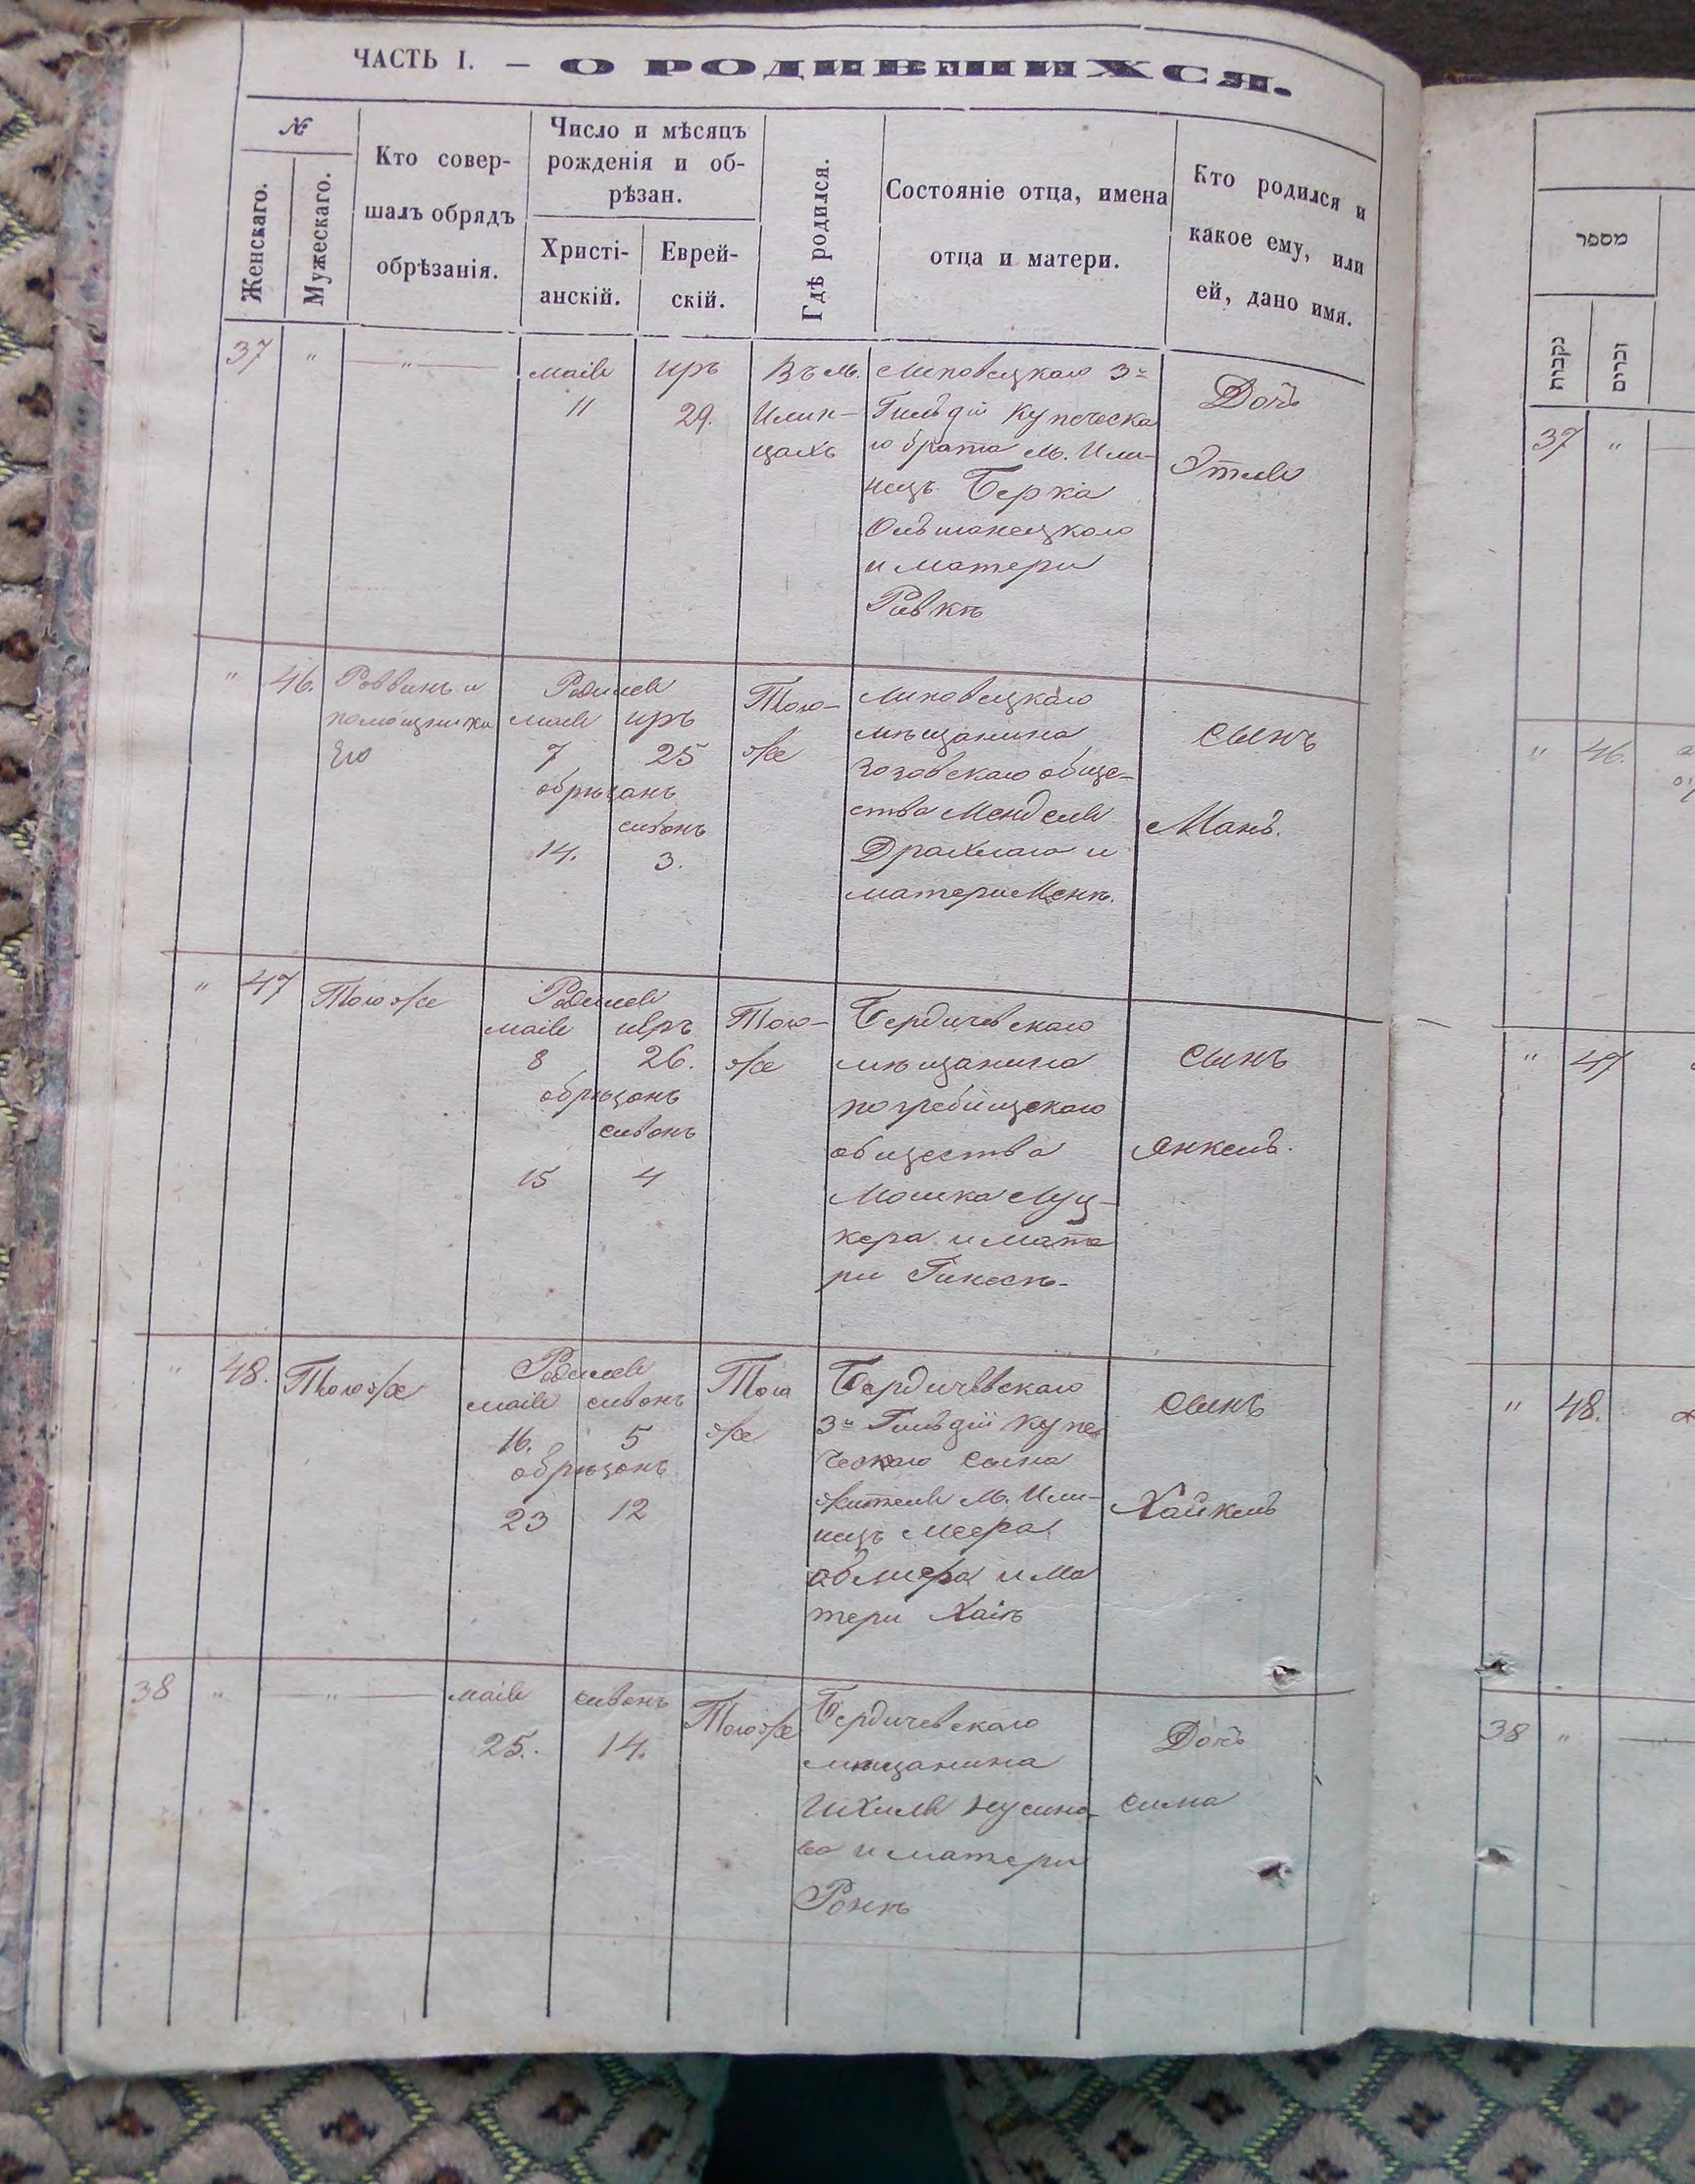 ЧАСТЬ I. — О РОДИВШИХСЯ.
№
Женскаго.
Мужескаго.
Кто совер-
шалъ обрядъ
обрѣзанія.
Число и мѣсяцъ
рожденія и об-
рѣзан.
Христі-
анскій.
Еврей-
скій.
Гдѣ родился.
Состояніе отца, имена
отца и матери.
Кто родился и
какое ему, или
ей, дано имя.
37
"
— " —
маія
11
иръ
29.
Въ м.
Илин-
цахъ
Липовецкаго 3й
Гильдіи Купеческа
го брата м. Или-
нецъ Берка
Ольшанецкаго
и матери
Ривкѣ
Дочь
Этля
"
46.
Раввинъ и
помощники
Его
Родился
маія иръ
7 25
обрѣзанъ
сивонъ
14. 3.
Того-
же
Липовецкаго
мѣщанина
общe-
ства Менделя
Драхлаго и
матери
сынъ
Мань.
"
47
Того же
Родился
маія иръ
8 26.
обрѣзанъ
сивонъ
15 4
Того-
же
Бердичевскаго
мѣщанина
погребищскаго
общества
Мошка Луц-
кера и мате
ри
сынъ
Янкель.
"
48.
Того же
Родился
маія сивонъ
16. 5
обрѣзанъ
23 12
Того
же
Бердичевскаго
3й Гильдіи купе
ческаго сына
жителя м. Или-
нецъ Меера
и ма
тери Хаіѣ
сынъ
Хайкель
38
"
— " —
маія
25.
сивонъ
14.
Того же
Бердичевскаго
мѣщанина
Ихиля Нусино-
ва и матери
Дочь
Сима
מספר
נקבית
זכרים
37 "
" 46.
" 47
" 48.
38 "